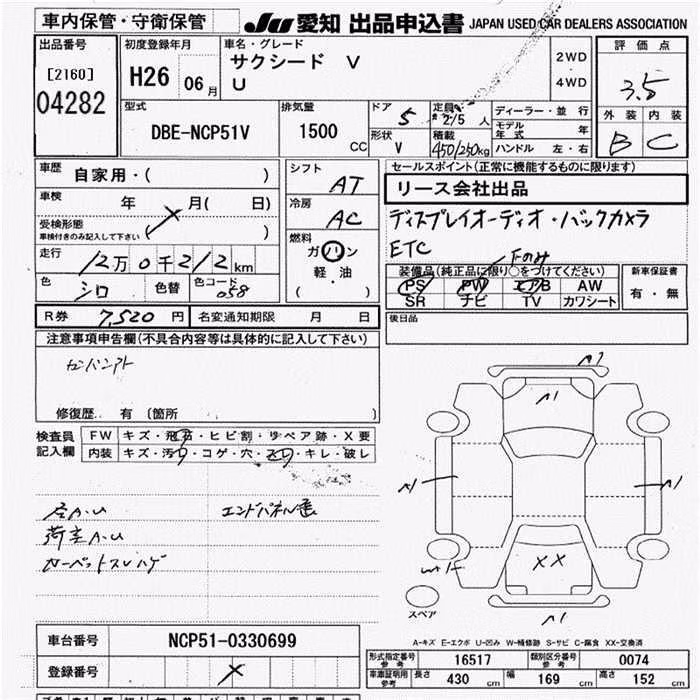 車内保管・守衛保管 JU 愛知 出品申込書 JAPAN USED CAR DEALERS ASSOCIATION
出品番号 初度登録年月 車名・グレード 評価点
[2160] H26 06月 サクシード V 2WD
04282 U 4WD 3.5
型式 排気量 ドア 5 定員 2/5 人 ディーラー・並行 外装 内装
DBE-NCP51V 1500 CC 形状 V 積載 450/250kg モデル年式 年 B C
ハンドル 左・右
車歴 自家用・( ) シフト AT セールスポイント(正常に機能するものに限ります)
車検 年 X 月( 日) 冷房 AC リース会社出品
受検形態 ( ) ディスプレイオーディオ・バックカメラ
車検付きのみ記入して下さい 燃料 ETC
走行 12万0千212km ガソリン Fのみ
色 シロ 色替 色コード 058 軽・油 装備品(純正品に限り○をつけてください) 新車保証書
( ) PS PW エアB AW 有・無
SR ナビ TV カワシート
R券 7,520円 名変通知期限 月 日 後日品
注意事項申告欄(不具合内容等は具体的に記入して下さい)
修復歴 有 (箇所 )
検査員記入欄 FW キズ・飛石・ヒビ割・リペア跡・X要
内装 キズ・汚れ・コゲ・穴・スレ・キレ・破レ
A1
A1
A1 A1
XX
スペア
A1
A-キズ E-エクボ U-凹み W-補修跡 S-サビ C-腐食 XX-交換済
車台番号 NCP51-0330699
登録番号 X
型式指定番号 参考 16517 類別区分番号 参考 0074
車庫証明用 参考 長さ 430 cm 幅 169 cm 高さ 152 cm